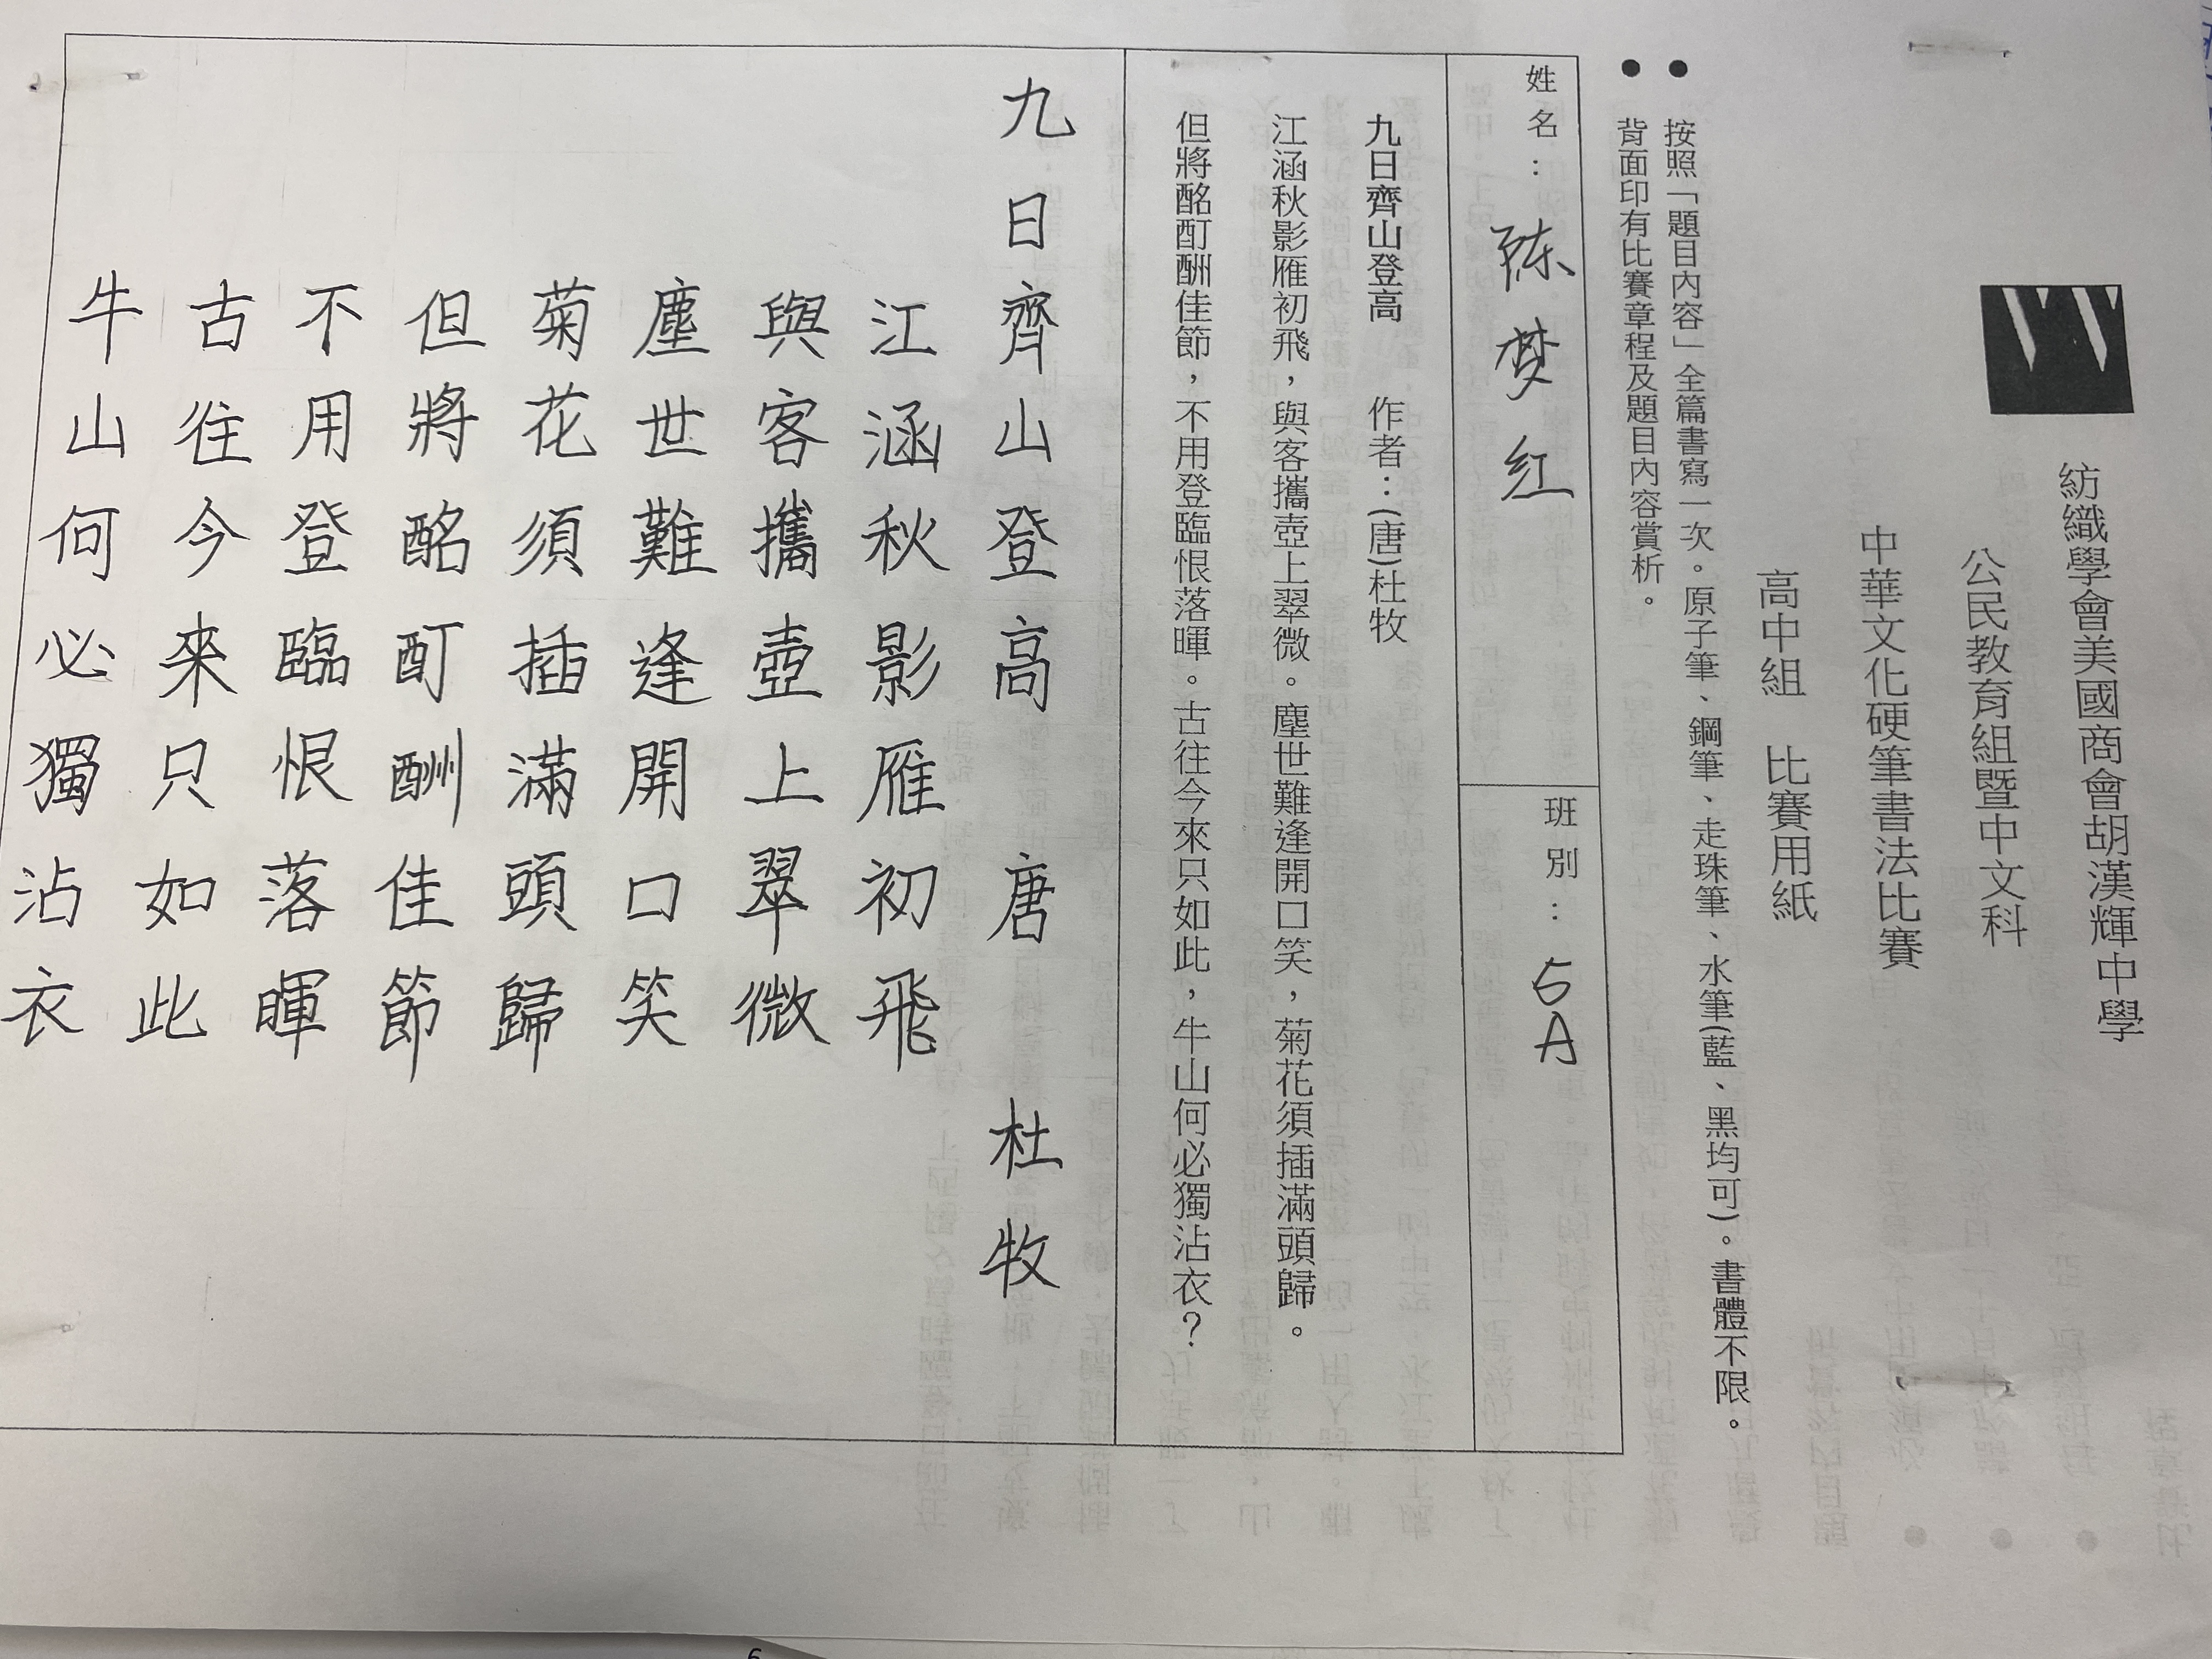 紡織學會美國商會胡漢輝中學
公民教育組暨中文科
中華文化硬筆書法比賽
高中組　比賽用紙
● 按照「題目內容」全篇書寫一次。原子筆、鋼筆、走珠筆、水筆(藍、黑均可)。書體不限。
● 背面印有比賽章程及題目內容賞析。
姓名：陈梦红
班別：5A
九日齊山登高　作者：(唐)杜牧
江涵秋影雁初飛，與客攜壺上翠微。塵世難逢開口笑，菊花須插滿頭歸。
但將酩酊酬佳節，不用登臨恨落暉。古往今來只如此，牛山何必獨沾衣？
九日齊山登高　唐　杜牧
江涵秋影雁初飛
與客攜壺上翠微
塵世難逢開口笑
菊花須插滿頭歸
但將酩酊酬佳節
不用登臨恨落暉
古往今來只如此
牛山何必獨沾衣